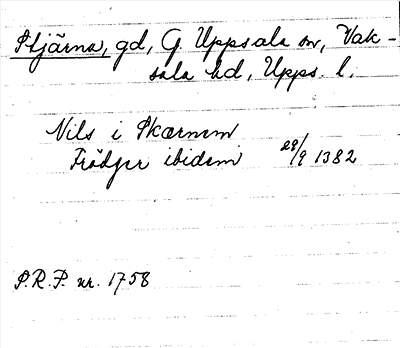 Stjärna, gd, G. Uppsala sn, Vak-
sala hd, Upps. l.
Nils i Skærnom
Frödger ibidem 29/9 1382
S.R.P. nr. 1758